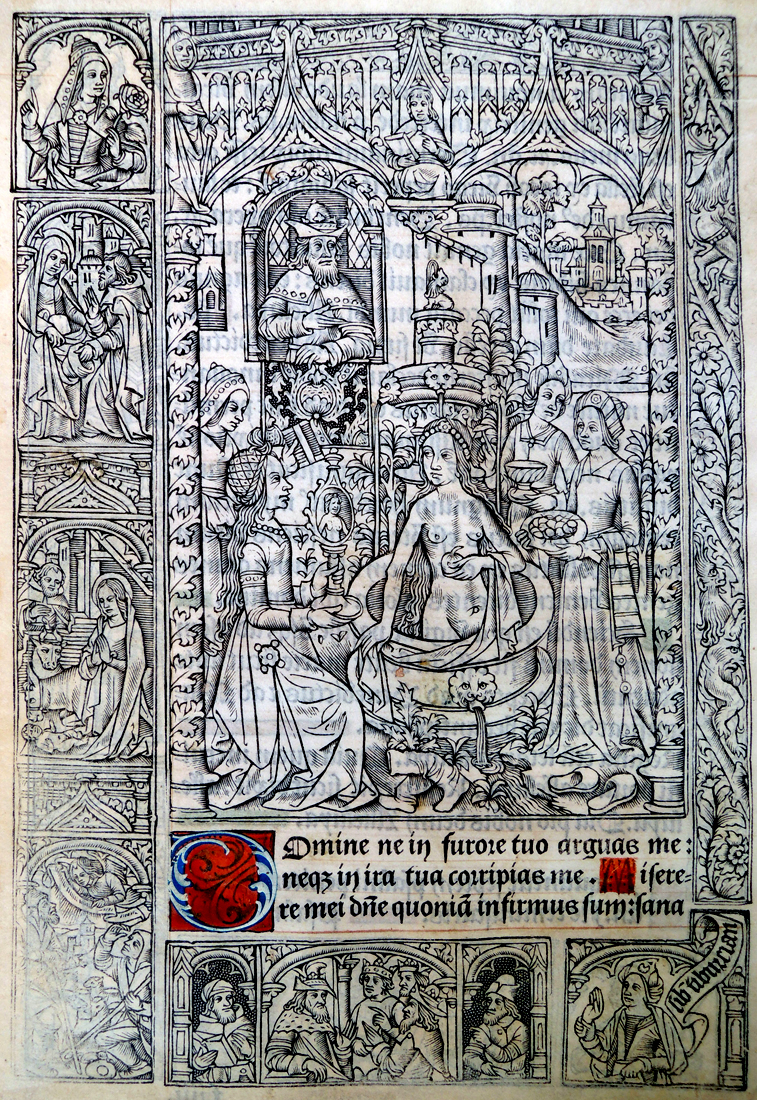 Domine ne in furore tuo arguas me:
neqꝫ in ira tua corripias me. Misere=
re mei dñe quoniã infirmus sum: sana